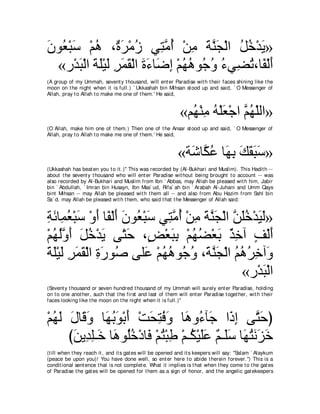 «يَدْخُلُ الْجَنَّةَ مِنْ أُمَّتِي زُمْرَةٌ، هُمْ سَبْعُونَ
أَلْفًا، تُضِيءُ وُجُوهُهُمْ إِضَاءَةَ الْقَمَرِ لَيْلَةَ الْبَدْر»
(A group of my Ummah, seventy thousand, will enter Paradise with their faces shining like the
moon on the night when it is full.) `Ukkashah bin Mihsan stood up and said, `O Messenger of
Allah, pray to Allah to make me one of them.' He said,
«اللْهُمَّ اجْعَلْهُ مِنْهُم»
(O Allah, make him one of them.) Then one of the Ansar stood up and said, `O Messenger of
Allah, pray to Allah to make me one of them.' He said,
«سَبَقَكَ بِهَا عُكَّاشَة»
(Ukkashah has beaten you to it.)'' This was recorded by (Al-Bukhari and Muslim). This Hadith --
about the seventy thousand who will enter Paradise without being brought to account -- was
also recorded by Al-Bukhari and Muslim from Ibn `Abbas, may Allah be pleased with him, Jabir
bin `Abdullah, `Imran bin Husayn, Ibn Mas`ud, Rifa`ah bin `Arabah Al-Juhani and Umm Qays
bint Mihsan -- may Allah be pleased with them all -- and also from Abu Hazim from Sahl bin
Sa`d, may Allah be pleased with them, who said that the Messenger of Allah said:
«لَيَدْخُلَنَّ الْجَنَّةَ مِنْ أُمَّتِي سَبْعُونَ أَلْفًا أَوْ سَبْعُمِائَةِ
أَلْفٍ آخِذٌ بَعْضُهُمْ بِبَعْضٍ، حَتَّى يَدْخُلَ أَوَّلُهُمْ
وَآخِرُهُمُ الْجَنَّةَ، وُجُوهُهُمْ عَلَى صُورَةِ الْقَمَرِ لَيْلَةَ
الْبَدْر»
(Seventy thousand or seven hundred thousand of my Ummah will surely enter Paradise, holding
on to one another, such that the first and last of them will enter Paradise together, with their
faces looking like the moon on the night when it is full.)''
(حَتَّى إِذَا جَآءُوهَا وَفُتِحَتْ أَبْوَبُهَا وَقَالَ لَهُمْ
خَزَنَتُهَا سَلَـمٌ عَلَيْكُـمْ طِبْتُمْ فَادْخُلُوهَا خَـلِدِينَ)
(till when they reach it, and its gates will be opened and its keepers will say: "Salam `Alaykum
(peace be upon you)! You have done well, so enter here to abide therein forever.'') This is a
conditional sentence that is not complete. What it implies is that when they come to the gates
of Paradise the gates will be opened for them as a sign of honor, and the angelic gatekeepers